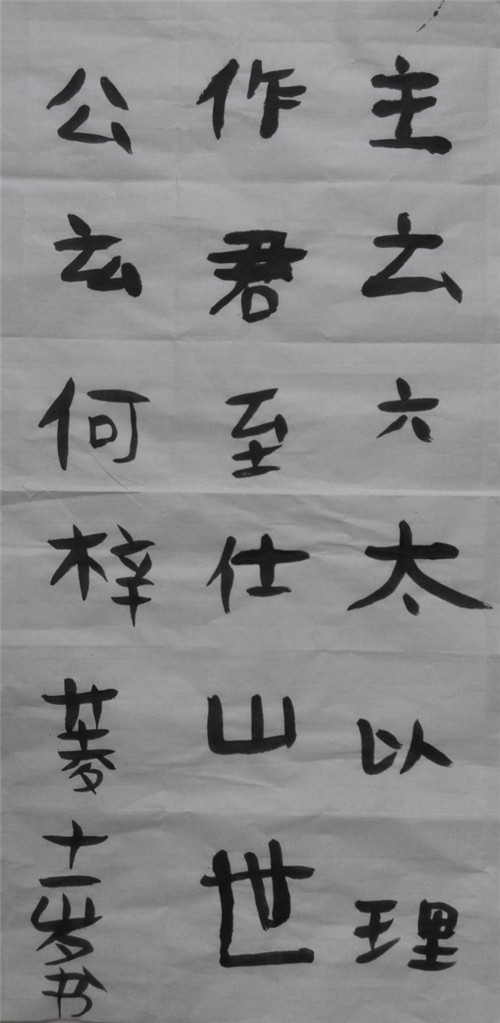 主六太以理
作君至仕山世
公玄何梓菱十一岁书